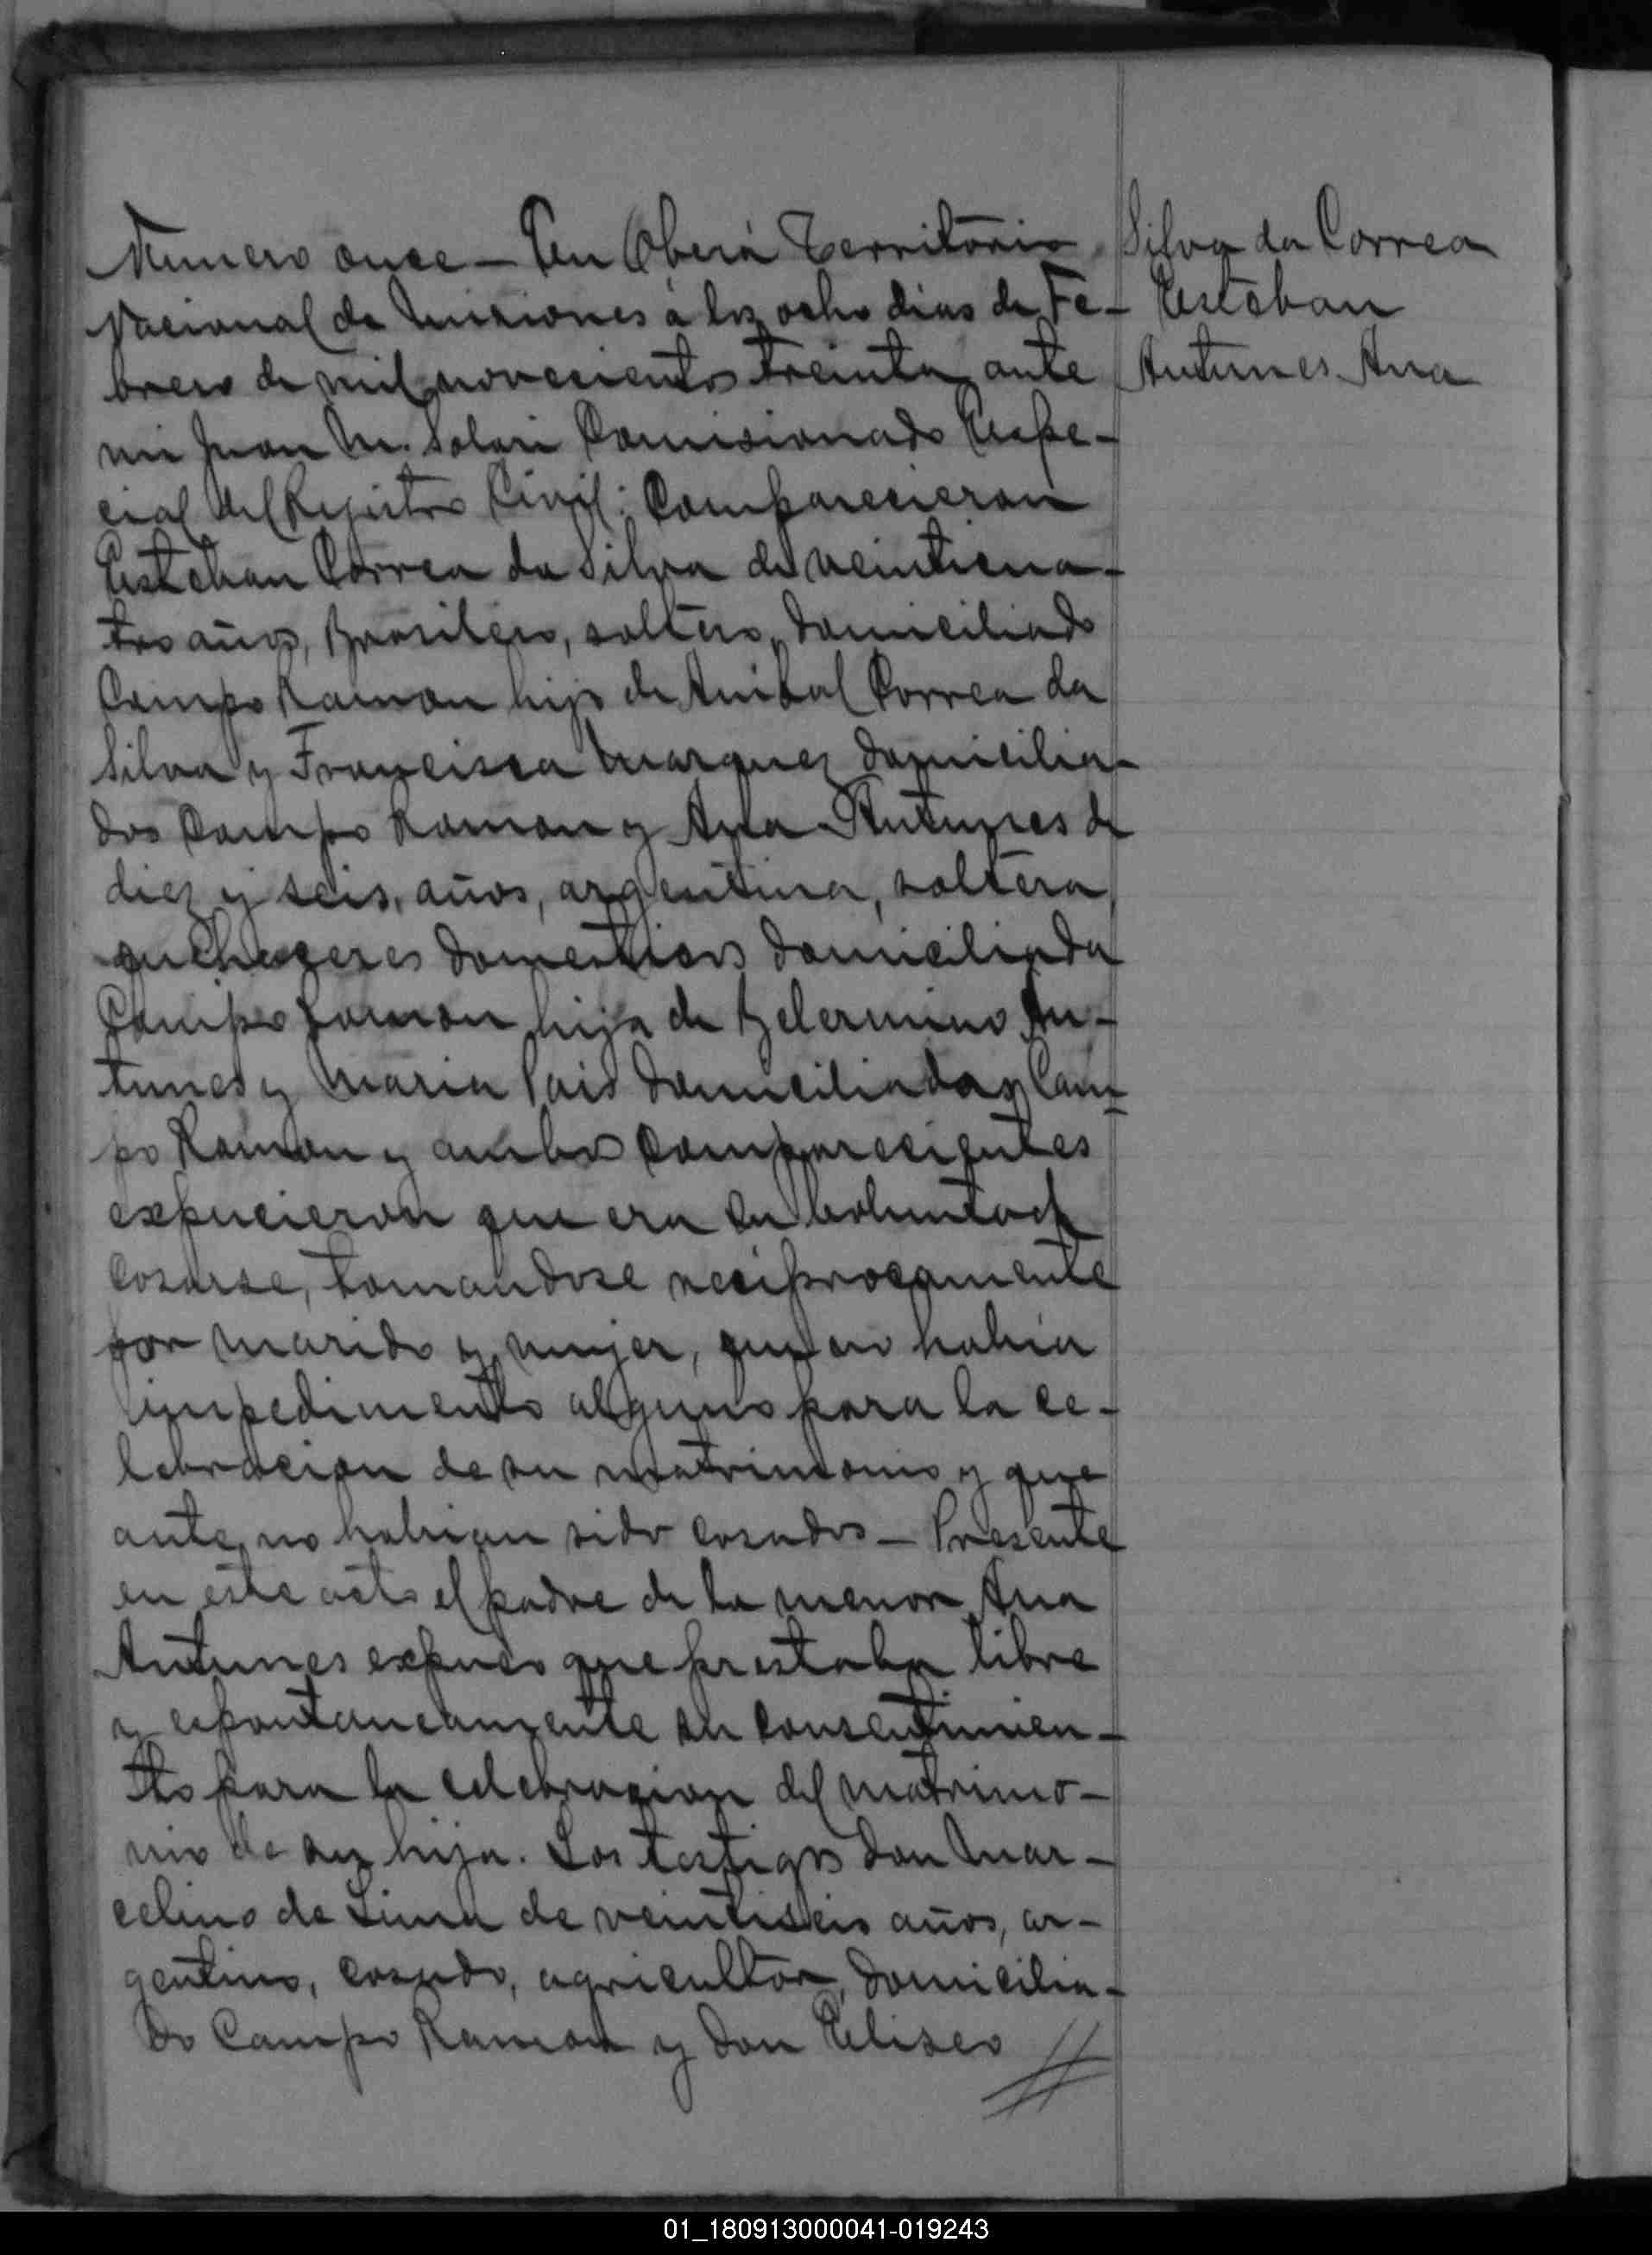 Numero once — En Oberá Territorio
Nacional de Misiones á los ocho dias de Fe-
brero de mil novecientos treinta ante
mi Juan M. Solari Comisionado Espe-
cial del Rejistro Civil: Comparecieron
Esteban Correa da Silva de veinticua-
tro años, Brasilero, soltero, domiciliado
Campo Ramon hijo de Anibal Correa da
Silva y Francisca Marquez domicilia-
dos Campo Ramon y Ana Antunes de
diez y seis, años, argentina, soltera,
quehaceres domesticos domiciliada
Campo Ramon hija de Belermino An-
tunes y Maria Pais domiciliados Cam-
po Ramon y ambos comparecientes
expucieron que era su boluntad
casarse, tomandose reciprocamente
por marido y mujer, que no habia
impedimento alguno para la ce-
lebracion de su matrimonio y que
ante no habian sido casados — Presente
en este acto el padre de la menor Ana
Antunes expuso que prestaba libre
y espontaneamente su consentimien-
to para la celebracion del matrimo-
nio de su hija. Los testigos don Mar-
celino de Lima de veintiseis años, ar-
gentino, casado, agricultor, domicilia-
do Campo Ramon y don Eliseo //
Silva da Correa
Esteban
Antunes Ana
01_180913000041-019243